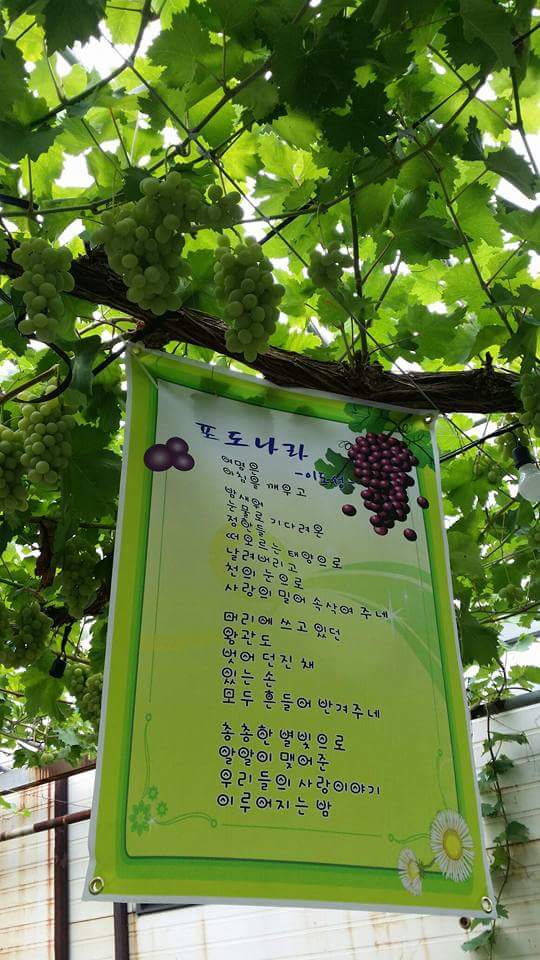 포도나라
여명은
아침을 깨우고
밤새워
눈물로 기다려온
정안들
떠오르는 태양으로
날려버리고
천의 눈으로
사랑의 밀어 속삭여 주네
머리에 쓰고 있던
왕관도
벗어 던진 채
있는 손
모두 흔들어 반겨주네
총총한 별빛으로
알알이 맺어준
우리들의 사랑이야기
이루어지는 밤